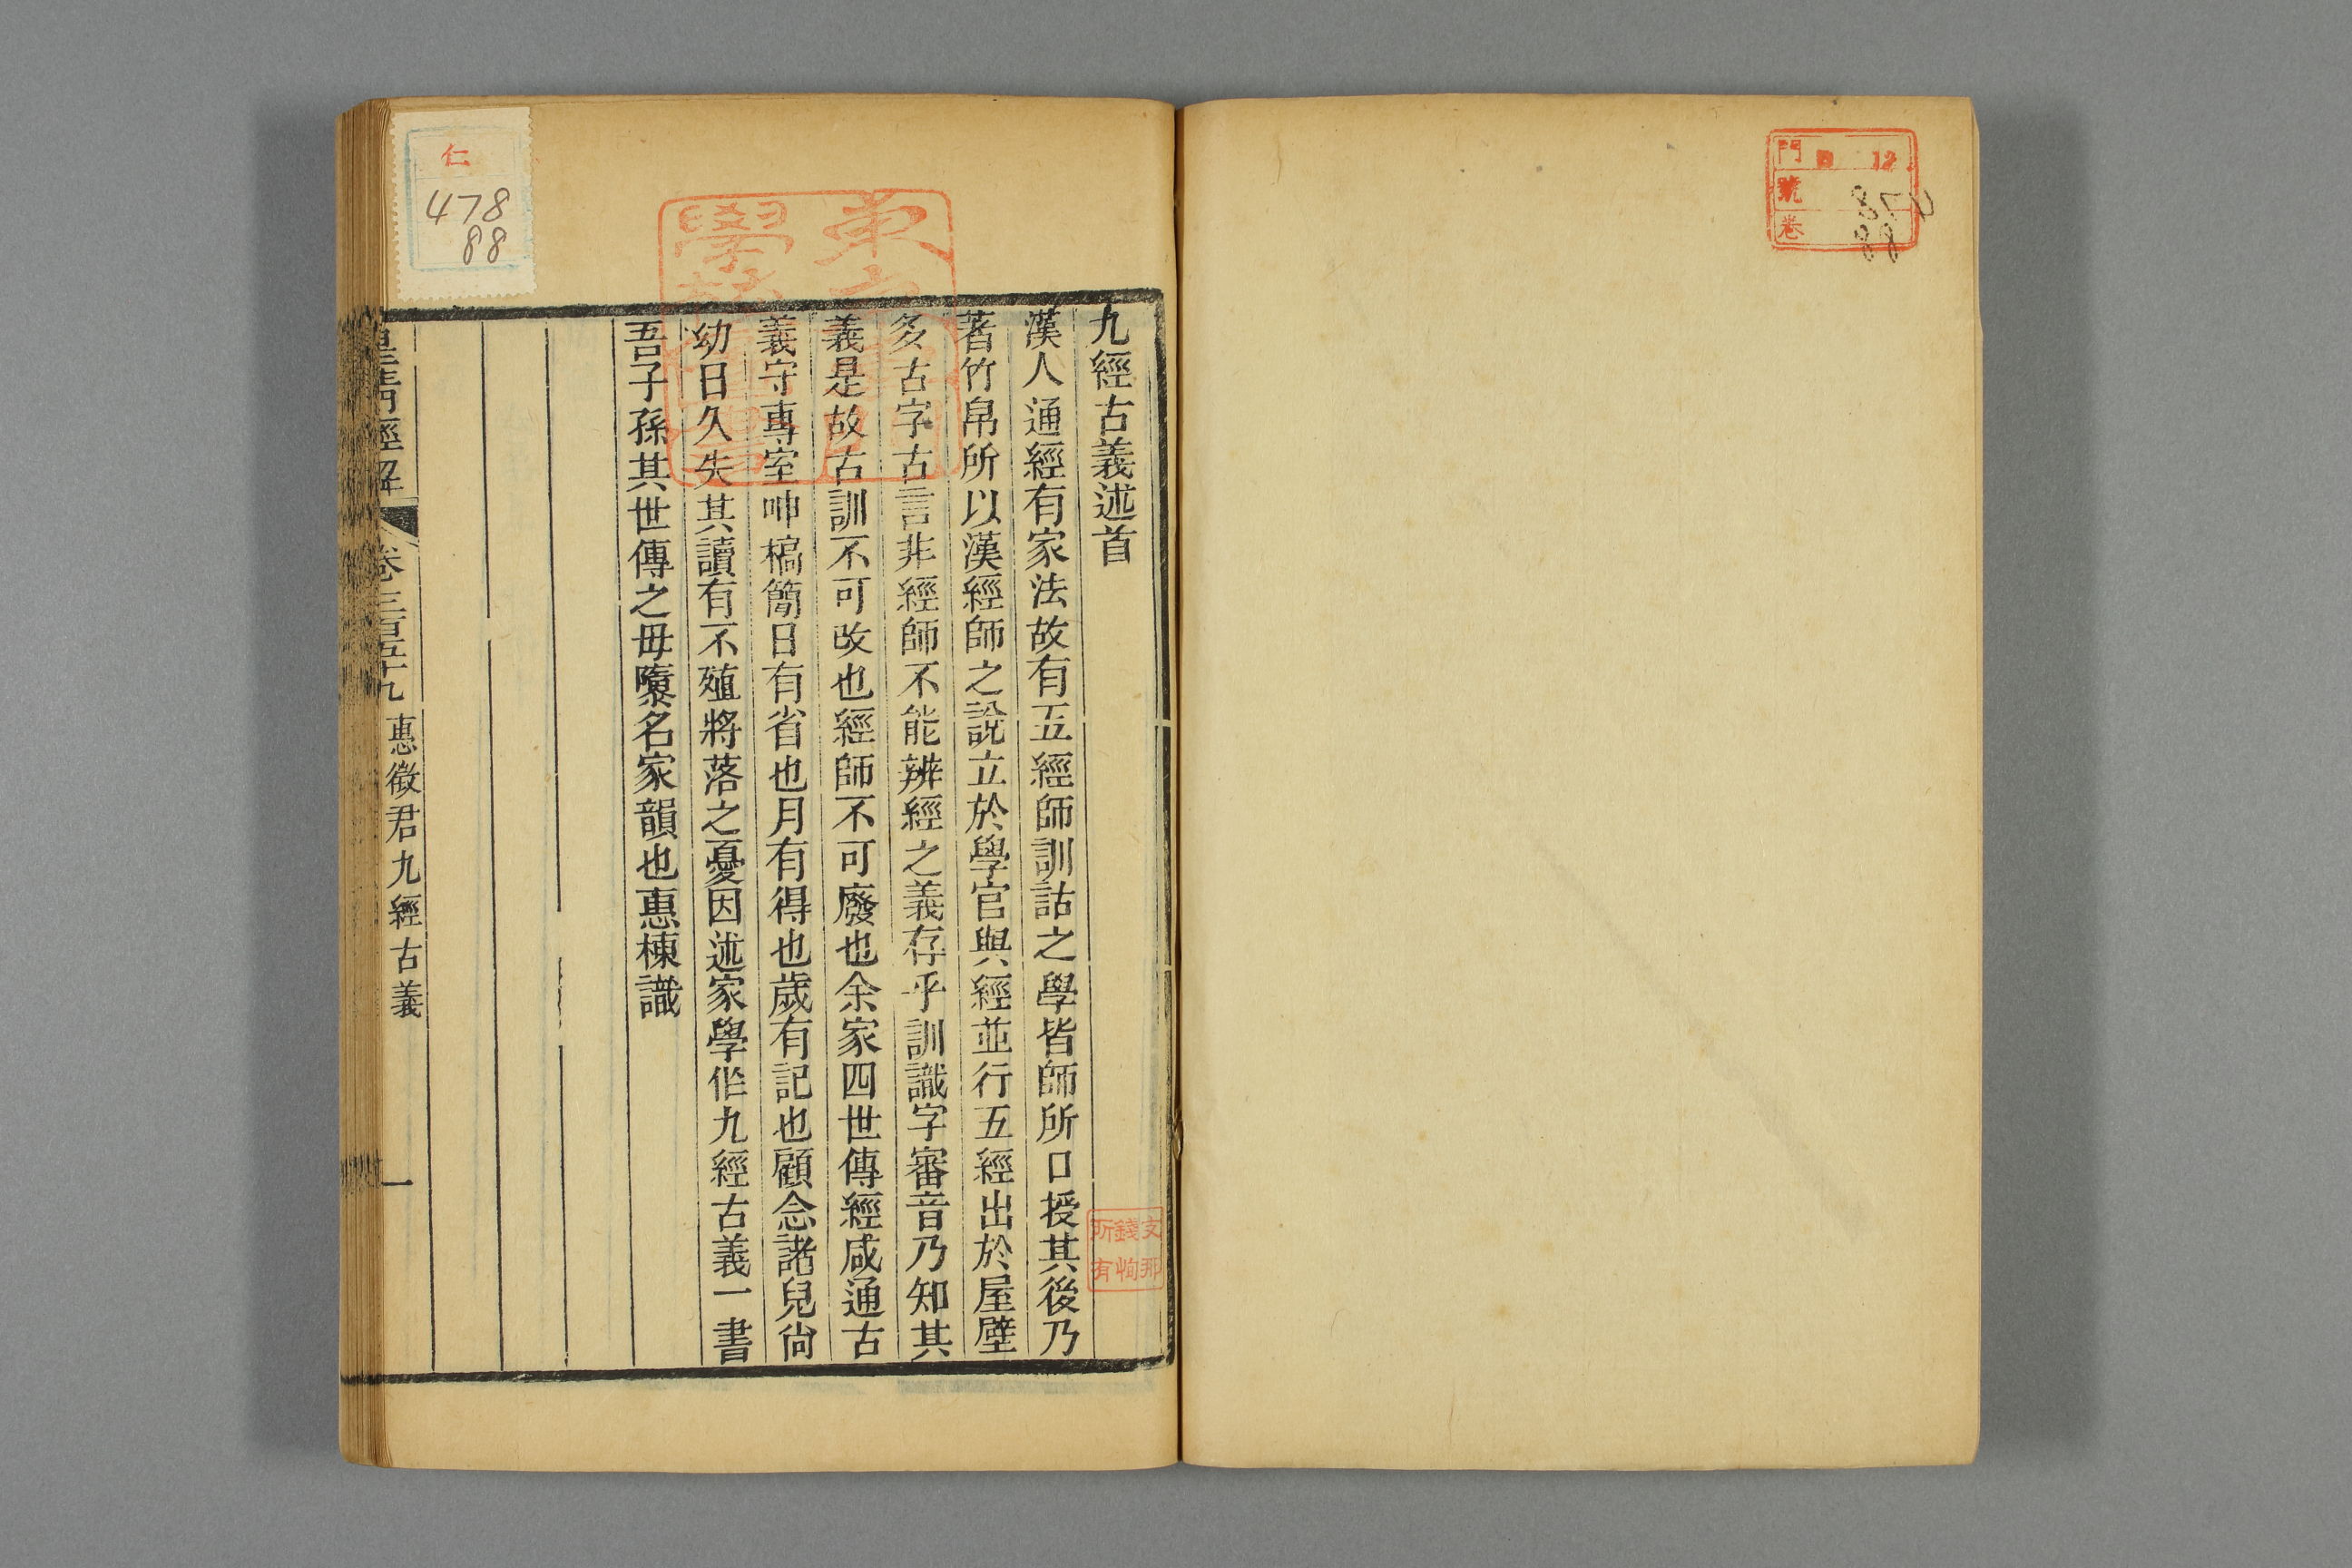 門 12
號 878
卷 88
九經古義述首
漢人通經有家法故有五經師訓詁之學皆師所口授其後乃
著竹帛所以漢經師之說立於學官與經並行五經出於屋壁
多古字古言非經師不能辨經之義存乎訓識字審音乃知其
義是故古訓不可改也經師不可廢也余家四世傳經咸通古
義守專室呻槁簡日有省也月有得也歲有記也顧念諸兒尙
幼日久失其讀有不殖將落之憂因述家學作九經古義一書
吾子孫其世傳之毋隳名家韻也惠棟識
皇淸經解 卷三百五十九 惠徵君九經古義 一
支那
錢恂
所有
仁
478
88